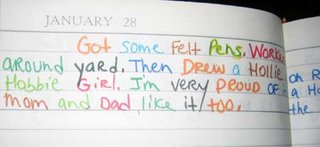 JANUARY 28
Got some felt Pens. Worked
around yard. Then Drew a Hollie
Hobbie Girl. I'm very PROUD OF it
Mom and Dad like it too.
on R
a Ho
the